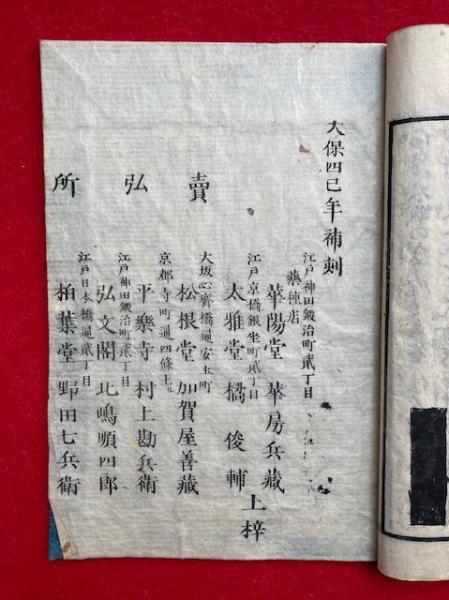 天保四巳年補刻
江戸神田鍛冶町貳丁目
藥種店
華陽堂 華房兵藏
江戸京橋銀坐町貳丁目
太雅堂 橘俊輔
上梓
賣弘所
大坂心齋橋通安土町
松根堂 加賀屋善藏
京都寺町通四條上ル
平樂寺 村上勘兵衛
江戸神田鍛冶町貳丁目
弘文閣 北嶋順四郎
江戸日本橋通貳丁目
柏葉堂 野田七兵衛